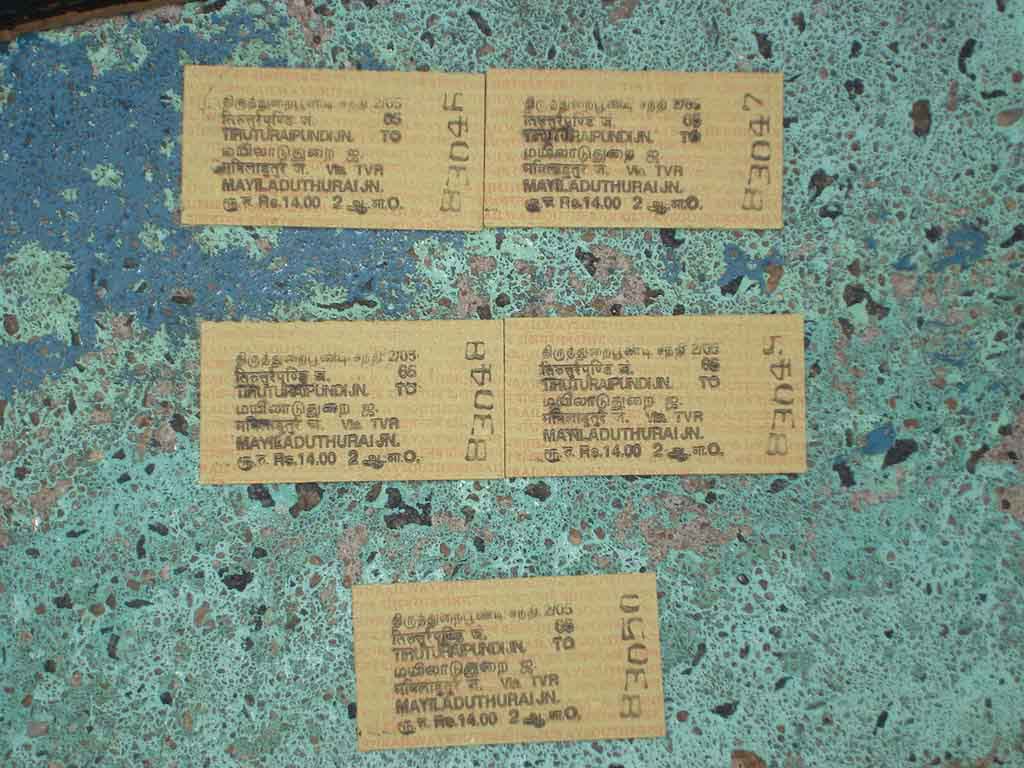 திருத்துறைபூண்டி சந்தி 2/05
तिरुत्तुरैपूण्डि जं. 65
TIRUTURAIPUNDI JN. TO
மயிலாடுதுறை ஜ.
मयिलाडुतुरै जं. Via TVR
MAYILADUTHURAI JN.
ரூ. रु. Rs.14.00 2 ஆ.சா.O.
திருத்துறைபூண்டி சந்தி 2/05
तिरुत्तुरैपूण्डि जं. 65
TIRUTURAIPUNDI JN. TO
மயிலாடுதுறை ஜ.
मयिलाडुतुरै जं. Via TVR
MAYILADUTHURAI JN.
ரூ. रु. Rs.14.00 2 ஆ.சா.O.
83047
திருத்துறைபூண்டி சந்தி 2/05
तिरुत्तुरैपूण्डि जं. 65
TIRUTURAIPUNDI JN. TO
மயிலாடுதுறை ஜ.
मयिलाडुतुरै जं. Via TVR
MAYILADUTHURAI JN.
ரூ. रु. Rs.14.00 2 ஆ.சா.O.
83048
திருத்துறைபூண்டி சந்தி 2/05
तिरुत्तुरैपूण्डि जं. 65
TIRUTURAIPUNDI JN. TO
மயிலாடுதுறை ஜ.
मयिलाडुतुरै जं. Via TVR
MAYILADUTHURAI JN.
ரூ. रु. Rs.14.00 2 ஆ.சா.O.
திருத்துறைபூண்டி சந்தி 2/05
तिरुत्तुरैपूण्डि जं. 65
TIRUTURAIPUNDI JN. TO
மயிலாடுதுறை ஜ.
मयिलाडुतुरै जं. Via TVR
MAYILADUTHURAI JN.
ரூ. रु. Rs.14.00 2 ஆ.சா.O.
83050